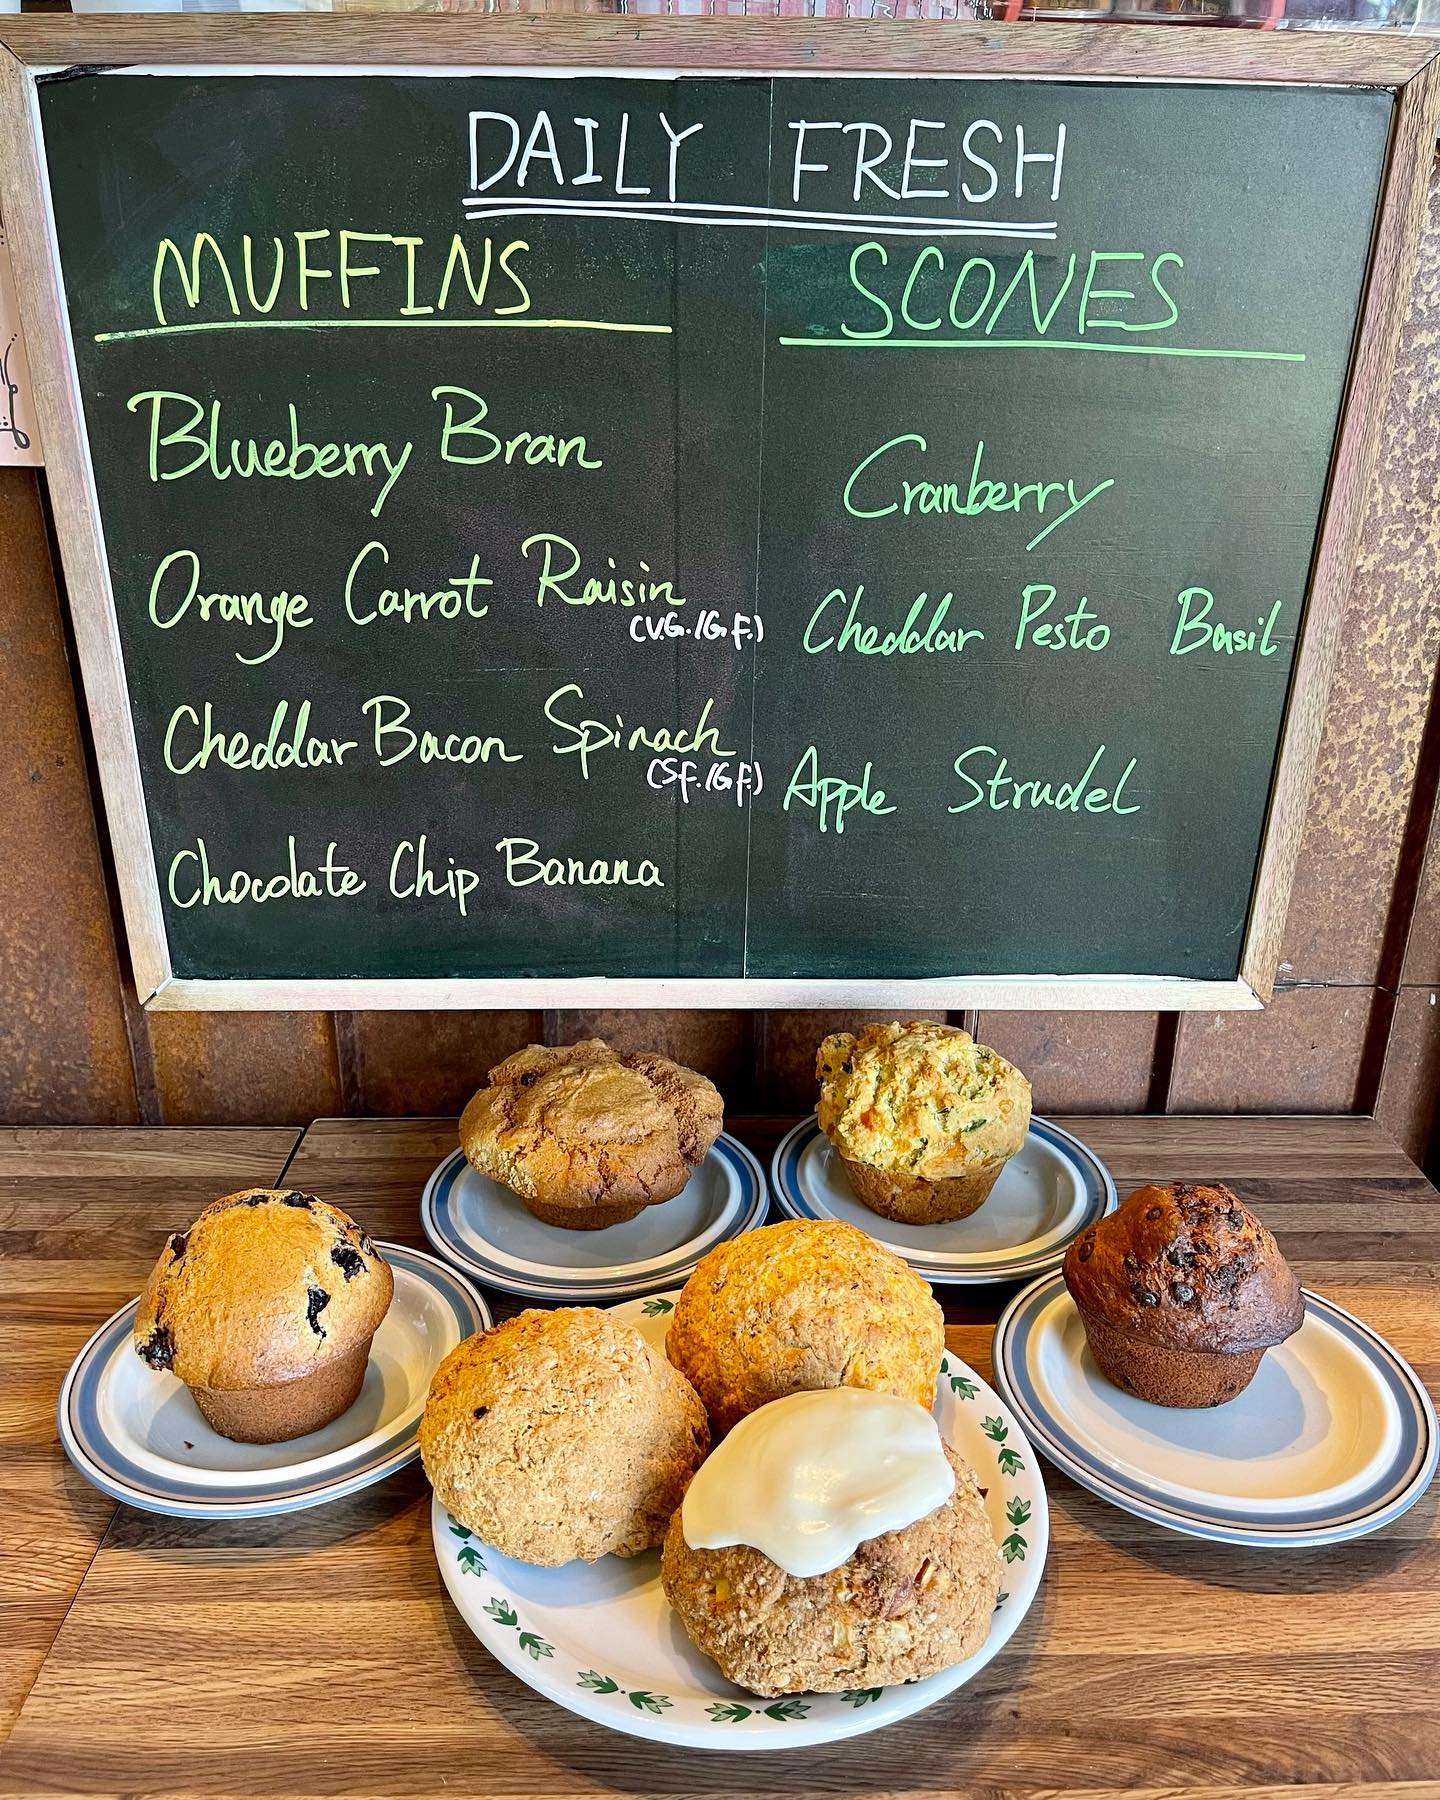 DAILY FRESH
MUFFINS
Blueberry Bran
Orange Carrot Raisin
(V.G./G.F.)
Cheddar Bacon Spinach
(S.F./G.F.)
Chocolate Chip Banana
SCONES
Cranberry
Cheddar Pesto Basil
Apple Strudel